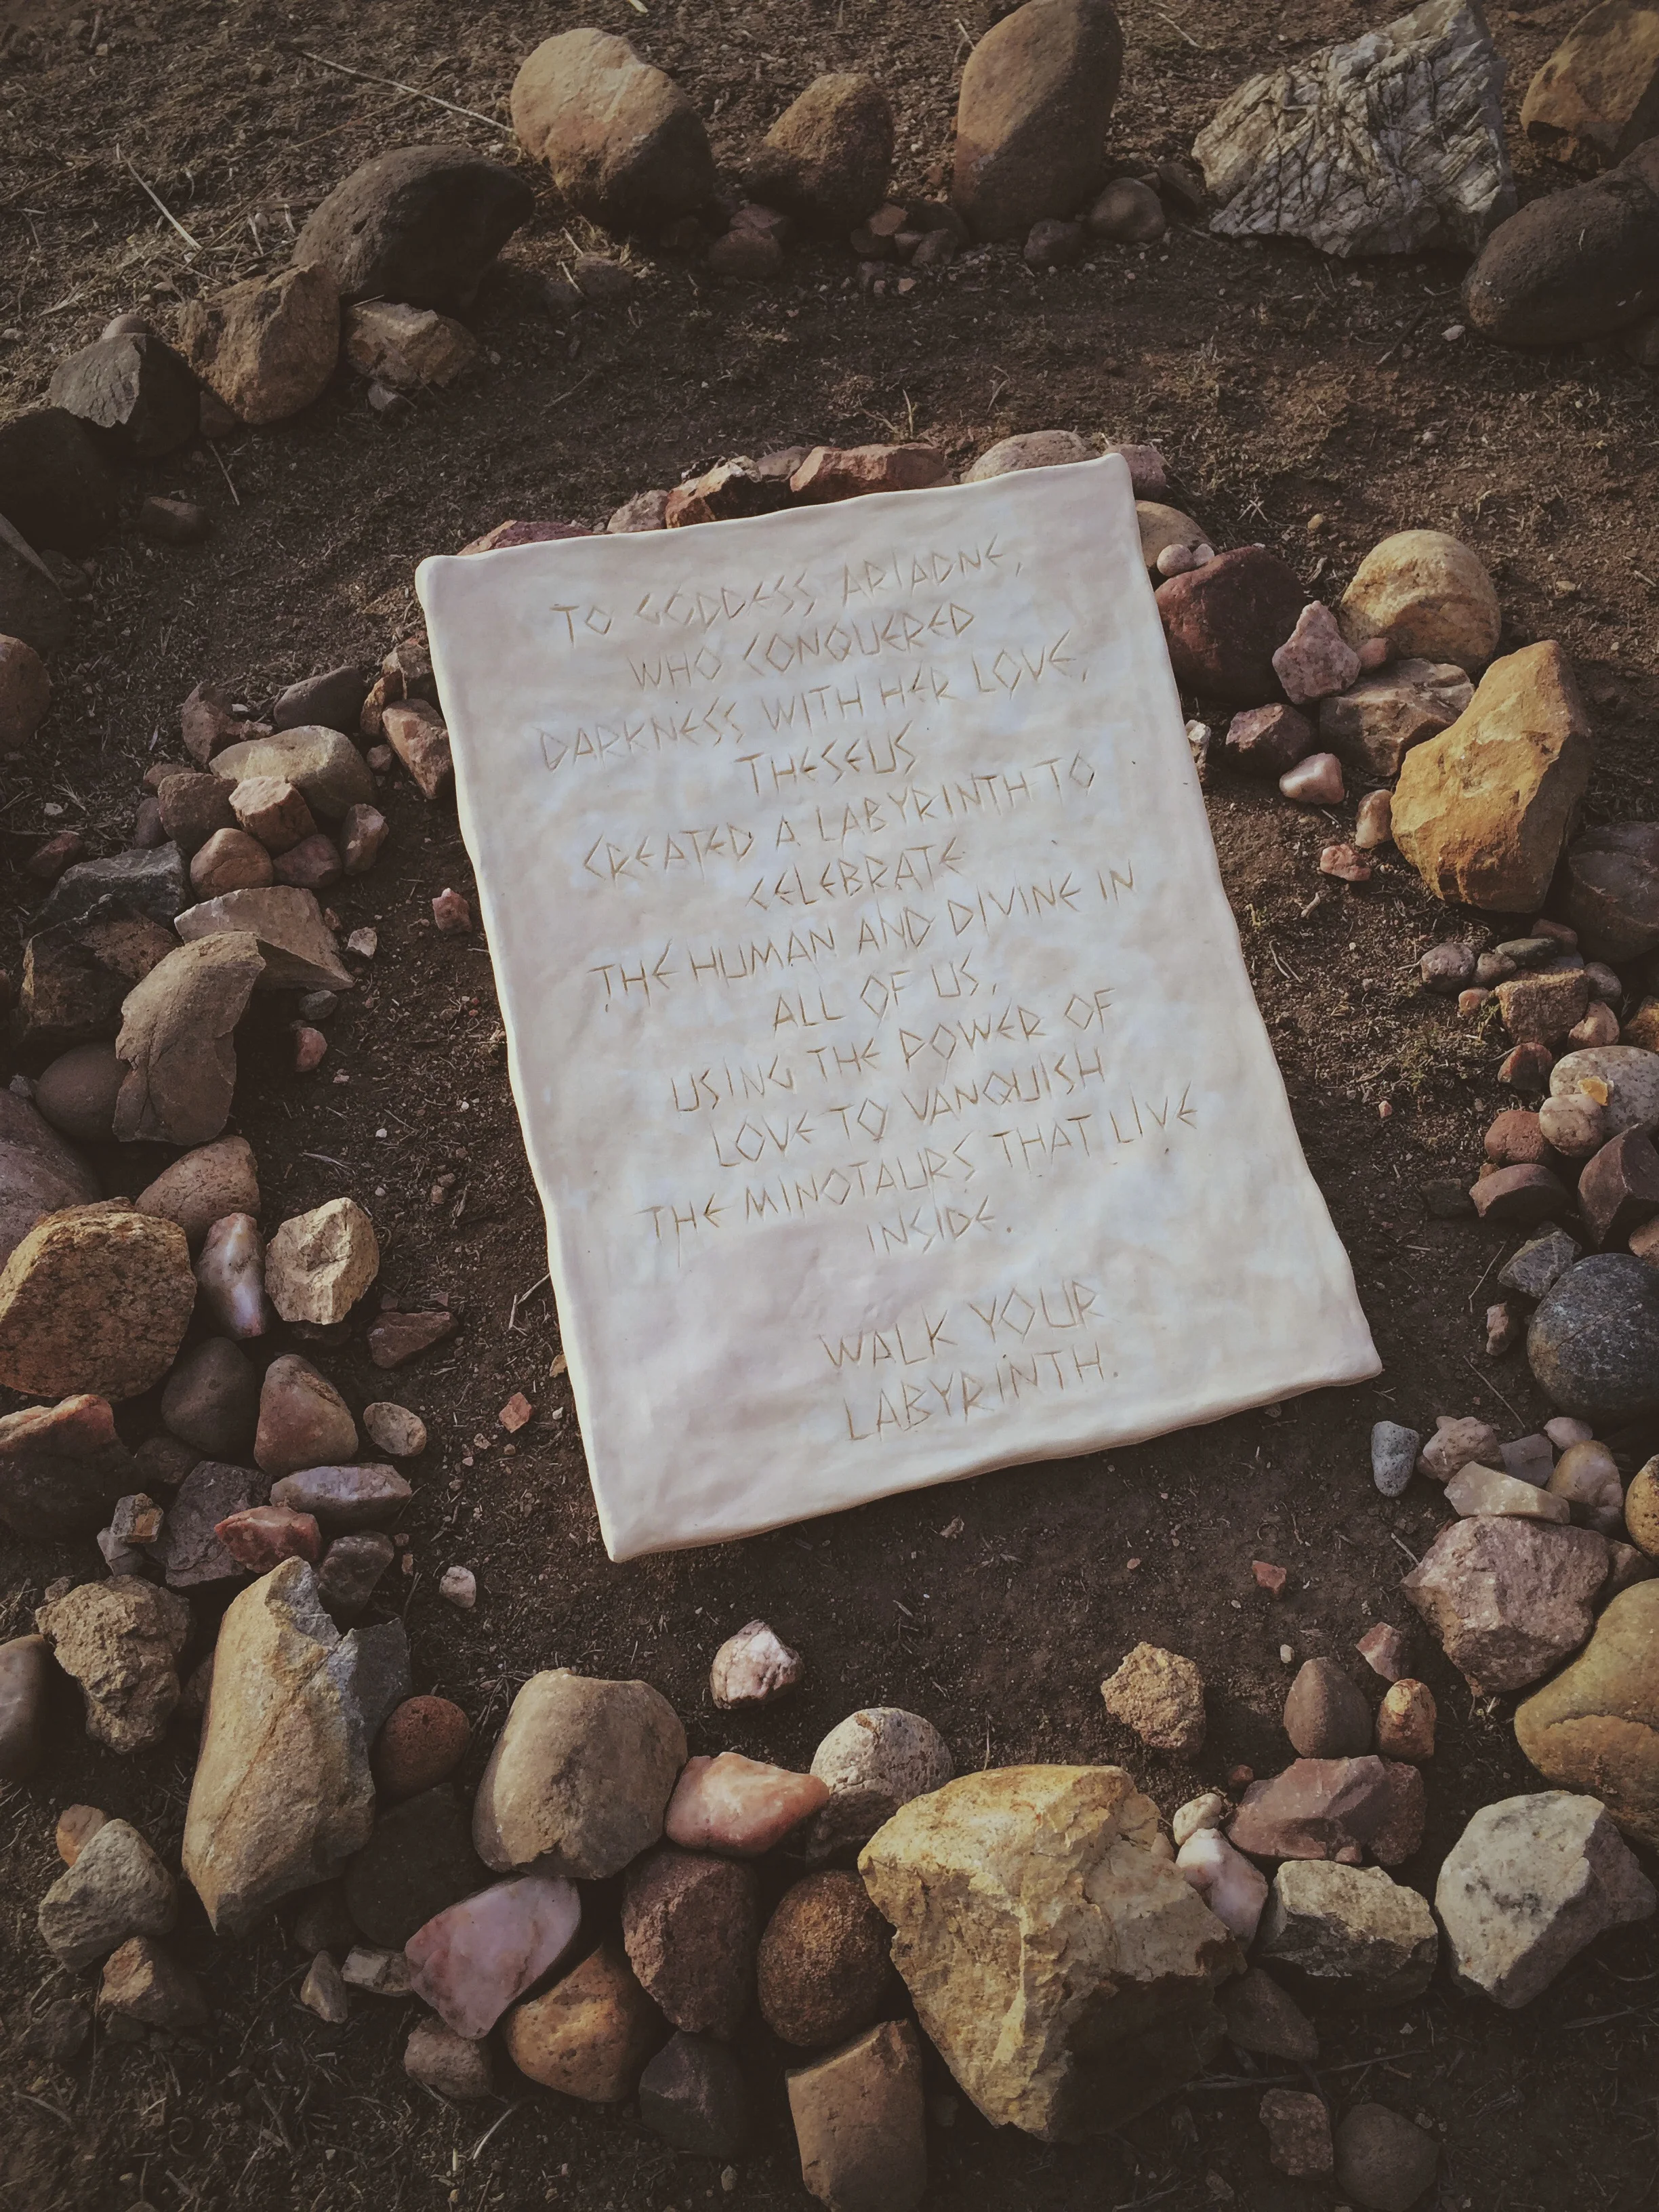 TO GODDESS ARIADNE,
WHO CONQUERED
DARKNESS WITH HER LOVE,
THESEUS
CREATED A LABYRINTH TO
CELEBRATE
THE HUMAN AND DIVINE IN
ALL OF US,
USING THE POWER OF
LOVE TO VANQUISH
THE MINOTAURS THAT LIVE
INSIDE.
WALK YOUR
LABYRINTH.